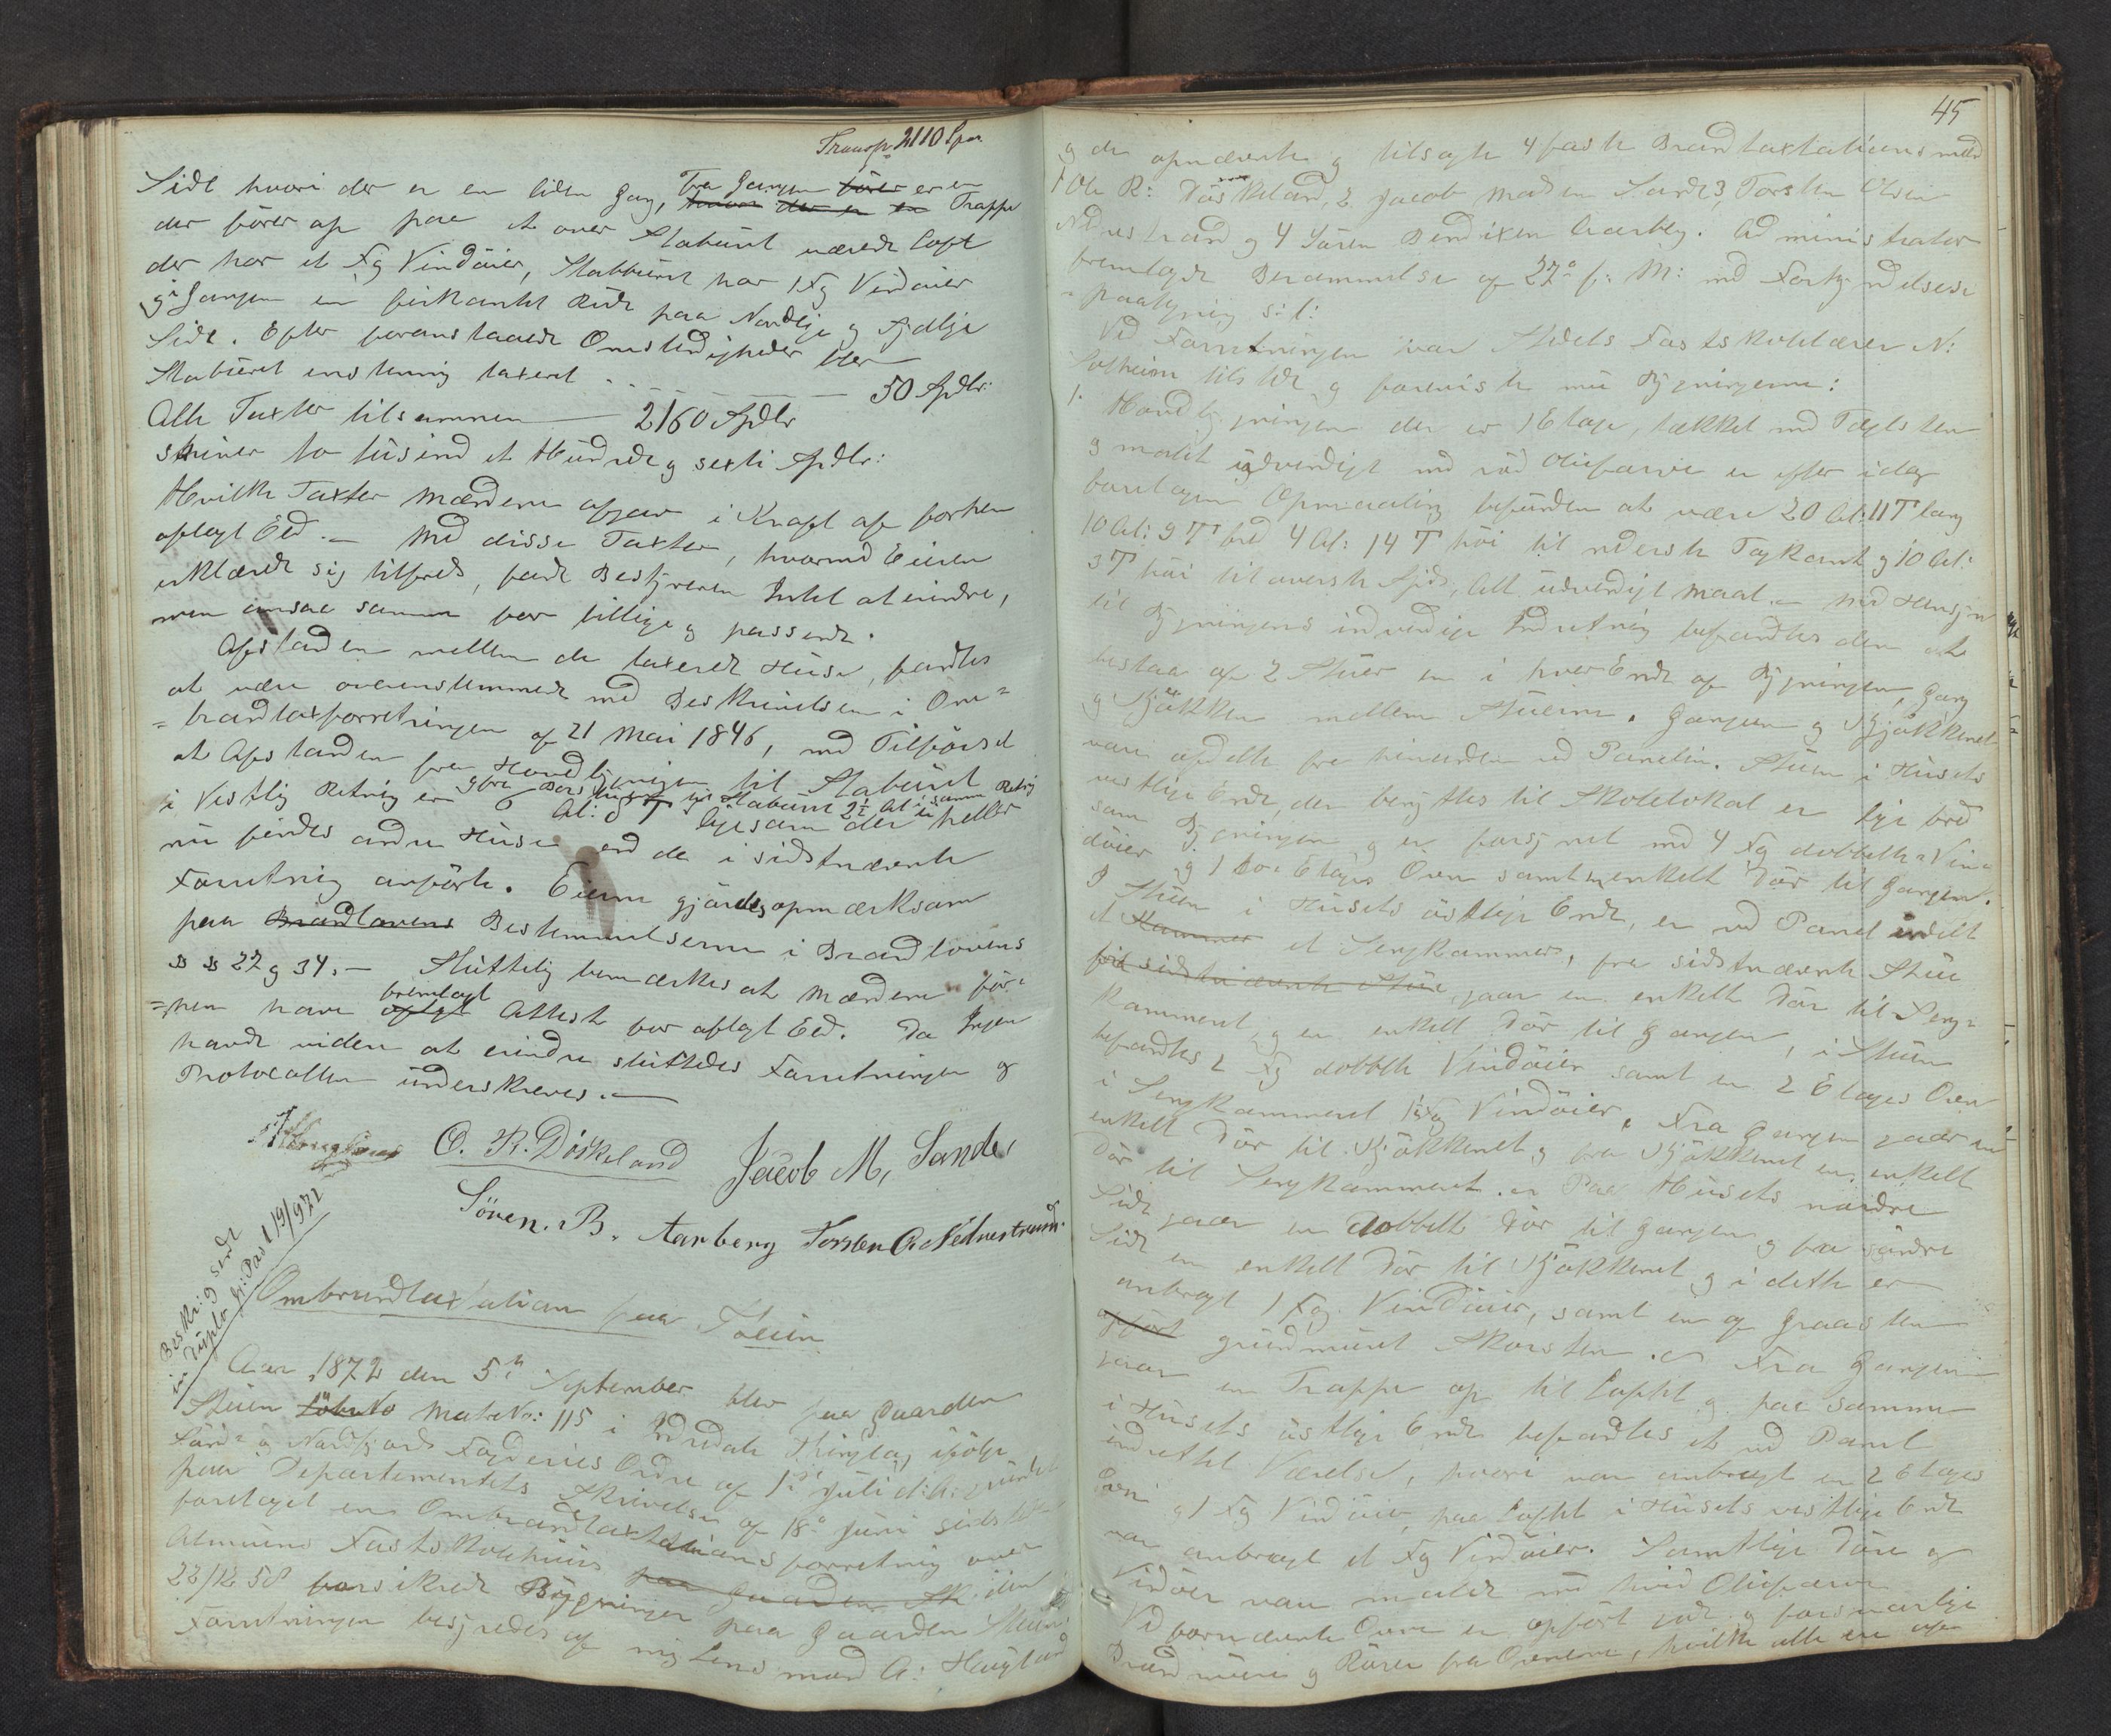 Transp. 2110 Spd.
Side hvori der er en liden Gang, Fra Gangen fører er en
hvorfra der er en Trappe
der fører op paa et over Stabüret værende Loft
der har et Fg Vindöier, Stabbüret har 1 Fg Vindöier
og i Gangen en firkantet Rüde paa Nordlige og Sydlige
Side. Efter foranstaaende Omstendigheder blev
Stabüret enstemmig taxeret - - - - - 50 Spdlr:
Alle Taxter tilsammen — 2160 Spdlr
skriver to tüsind et Hündrede og sexti Spdlr:
Hvilke Taxter Mændene afgav i Kraft af forhen
aflagt Ed. — Med disse Taxter, hvormed Eieren
erklærede sig tilfreds, fandt Bestyreren Intet at erindre,
men ansaa samme for billige og passende.
Afstanden mellem de taxerede Hüse, fandtes
at være overensstemmende med Beskrivelsen i Om=
=brandtaxforretningen af 21 Mai 1846, med Tilförsel
at Afstanden fra Hovedbygningen til Stabüret
i Vestlig Retning er 6 Al: 8 T ligesom der heller
nu findes andre Hüse end de i sidstnævnte
Forretning anförte. Eieren gjordes opmærksom
paa Brandlovens Bestemmelserne i Brandlovens
§ § 22 og 34. — Slüttelig bemærkes at Mændene för=
=hen have aflagt fremlagt Attest for aflagt Eed. Da Ingen
havde videre at erindre slüttedes Forretningen og
Protocollen ünderskreves. —
O. R. Döskeland Jacob M, Sande
Sören. B. Aarberg Torsten O. Nedrestrand.
Beskr: og sendt
in duplo 19/9 72
Ombrandtaxation paa Steien
Aar 1872 den 5te September blev paa Gaarden
Steien Löbe No Matr No: 115 i Ytredals Thinglag, ifölge
Sönd- og Nordfjords Fogderies Ordre af 1ste Juli d: A: grundet
paa Departementets Skrivelse af 18de Juni sidstl:
foretaget en Ombrandtaxtations forretning over
Almuens Fastskolehüüs paa Gaarden St. den
22/12 58 forsikrede Bÿgninger paa Gaarden Steien
Forretningen bestyredes af mig Lensmand A: Haugland
45
og de opnævnte og tilsagte 4 faste Brandtaxtationsmænd
1 Ole R: Döskeland, 2 Jacob Madsen Sande, 3, Torsten Olsen
Nedrestrand og 4 Sören Bendixen Aarberg. Administrator
fremlagde Berammelse af 27de f: M: med Forkyndelses
paategning s: l:
Ved Forretningen var Stedets Fastskolelærer N:
Solheim tilstede og foreviste mü Bygningerne:
1. Hovedbygningen der er 1 Etage, tækket med Tagsten
og malet üdvendigt med röd Oliefarve er efter idag
foretagen Opmaaling befunden at være 20 Al: 11 T lang
10 Al: 9 T bred 4 Al: 14 T höi til nderste Tagkant og 10 Al:
3 T höi til överste Spids, Alt üdvendigt Maal. — Med Hensyn
til Bygningens indvendige Indretning befandtes den at
bestaa af 2 Stüer en i hver Ende af Bygningen, Gang
og Kjökken mellem Stüerne. Gangen og Kjökkenet
vare afdelte fra hinanden ved Paneling. Stüen i Hüsets
vestlige Ende, der benyttes til Skolelokal er lige bred
som Bygningen og er forsynet med 4 Fg dobbelte Vin=
döier og 1 to Etages Oven samt en enkelt Dör til Gangen.
I Stüen i Hüsets östlige Ende, er ved Panel indelt
et Kammer et Sengkammer, fra sidstnævnte Stüe
fra sidstnævnte Stüe gaar en enkelt Dör til Seng=
kammeret og en enkelt Dör til Gangen, i Stüen
befandtes 2 Fg dobbelte Vindöier samt en 2 Etages Oven
i Sengkammeret 1 Fg Vindöier. Fra Gangen gaar en
enkelt Dör til Kjökkenet og fra Kjökkenet en enkelt
Dör til Sengkammeret. Paa Hüsets nordre
Side gaar en dobbelt Dör til Gangen og fra söndre
Side en enkelt Dör til Kjökkenet og i dette er
anbragt 1 Fg. Vindöier, samt en af Graasten
opfört grundmüret Skorsten. Fra Gangen
gaar en Trappe op til Loftet og paa samme
i Hüsets östlige Ende befandtes et ved Panel
indrettet Værelse, hvori var anbragt en 2 Etages
Oven og 1 Fg Vindöier, paa Loftet i Hüsets vestlige Ende
var anbragt et Fg Vindöier. Samtlige Döre og
Vindöier vare malede med hvid Oliefarve
Ved fornævnte Ovne er opfört gode og forsvarlige
Brandmüre og Rörene fra Ovnene, hvilke alle ere af